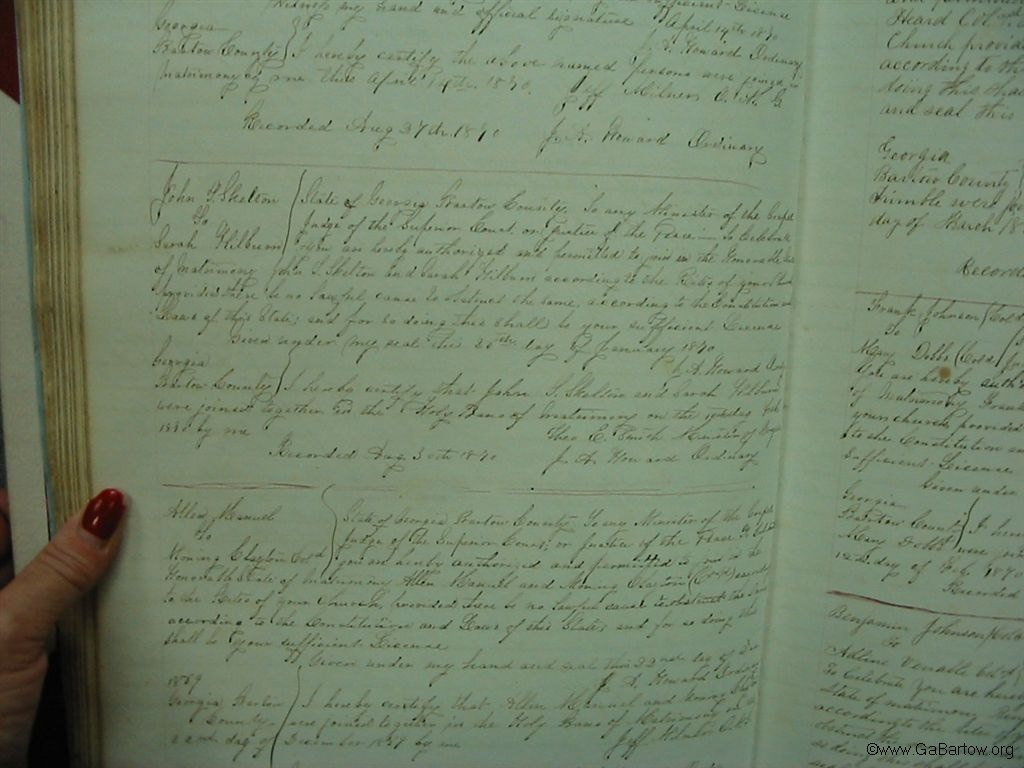 Witness my hand and official signature April 14th 1870
Georgia J. A. Howard Ordinary
Bartow County I hereby certify the above named persons were joined in
matrimony by me this April 14th 1870. Jeff Milner
Recorded Aug 27th 1870 J. A. Howard Ordinary
John S. Skelton State of Georgia Bartow County, To any Minister of the Gospel
to Judge of the Superior Court or Justice of the Peace to Celebrate
Sarah Hilburn You are hereby authorized and permitted to join in the Honorable State
of Matrimony John S. Skelton and Sarah Hilburn according to the Rites of your Church
provided there be no lawful cause to obstruct the same, according to the Constitution and
Laws of this State; and for so doing this shall be your sufficient License
Given under my seal the 25th day of January 1870
Georgia J. A. Howard Ord
Bartow County I hereby certify that John S. Skelton and Sarah Hilburn
were joined together in the Holy Bans of matrimony on the
1870 by me Theo E. Smith Minister of Gospel
Recorded Aug 30th 1870 J. A. Howard Ordinary
Allen Manuel State of Georgia Bartow County To any Minister of the Gospel
to Judge of the Superior Court, or Justice of the Peace to Celebrate
Clayton Cold you are hereby authorized and permitted to join in the
Honorable State of Matrimony Allen Manuel and Clayton (Cold) according
to the Rites of your Church, provided there be no lawful cause to obstruct the same
according to the Constitution and Laws of this State; and for so doing this
shall be your sufficient License
Given under my hand and seal this 22nd day of Dec
1869 J. A. Howard Ordinary
Georgia Bartow I hereby certify that Allen Manuel and
County were joined together in the Holy Bans of Matrimony on
22nd day of December 1869 by me Jeff Milner
Heard Cold and
Church provided
according to the
doing this shall
and seal this
Georgia
Bartow County
Trimble were joi
day of March 18
Recorde
Frank Johnson (Cold)
To
Mary Dobbs (Cold)
You are hereby auth
of Matrimony Frank
your church, provided
to the Constitution an
Sufficient License
Given under
Georgia
Bartow County I here
Mary Dobbs were join
12th day of Feb 1870
Recorded
Benjamin Johnson (Cold
To
Adline Venable Cold
To Celebrate You are here
State of matrimony Benj
according to the rites of y
so doing this shall be
©www.GaBartow.org